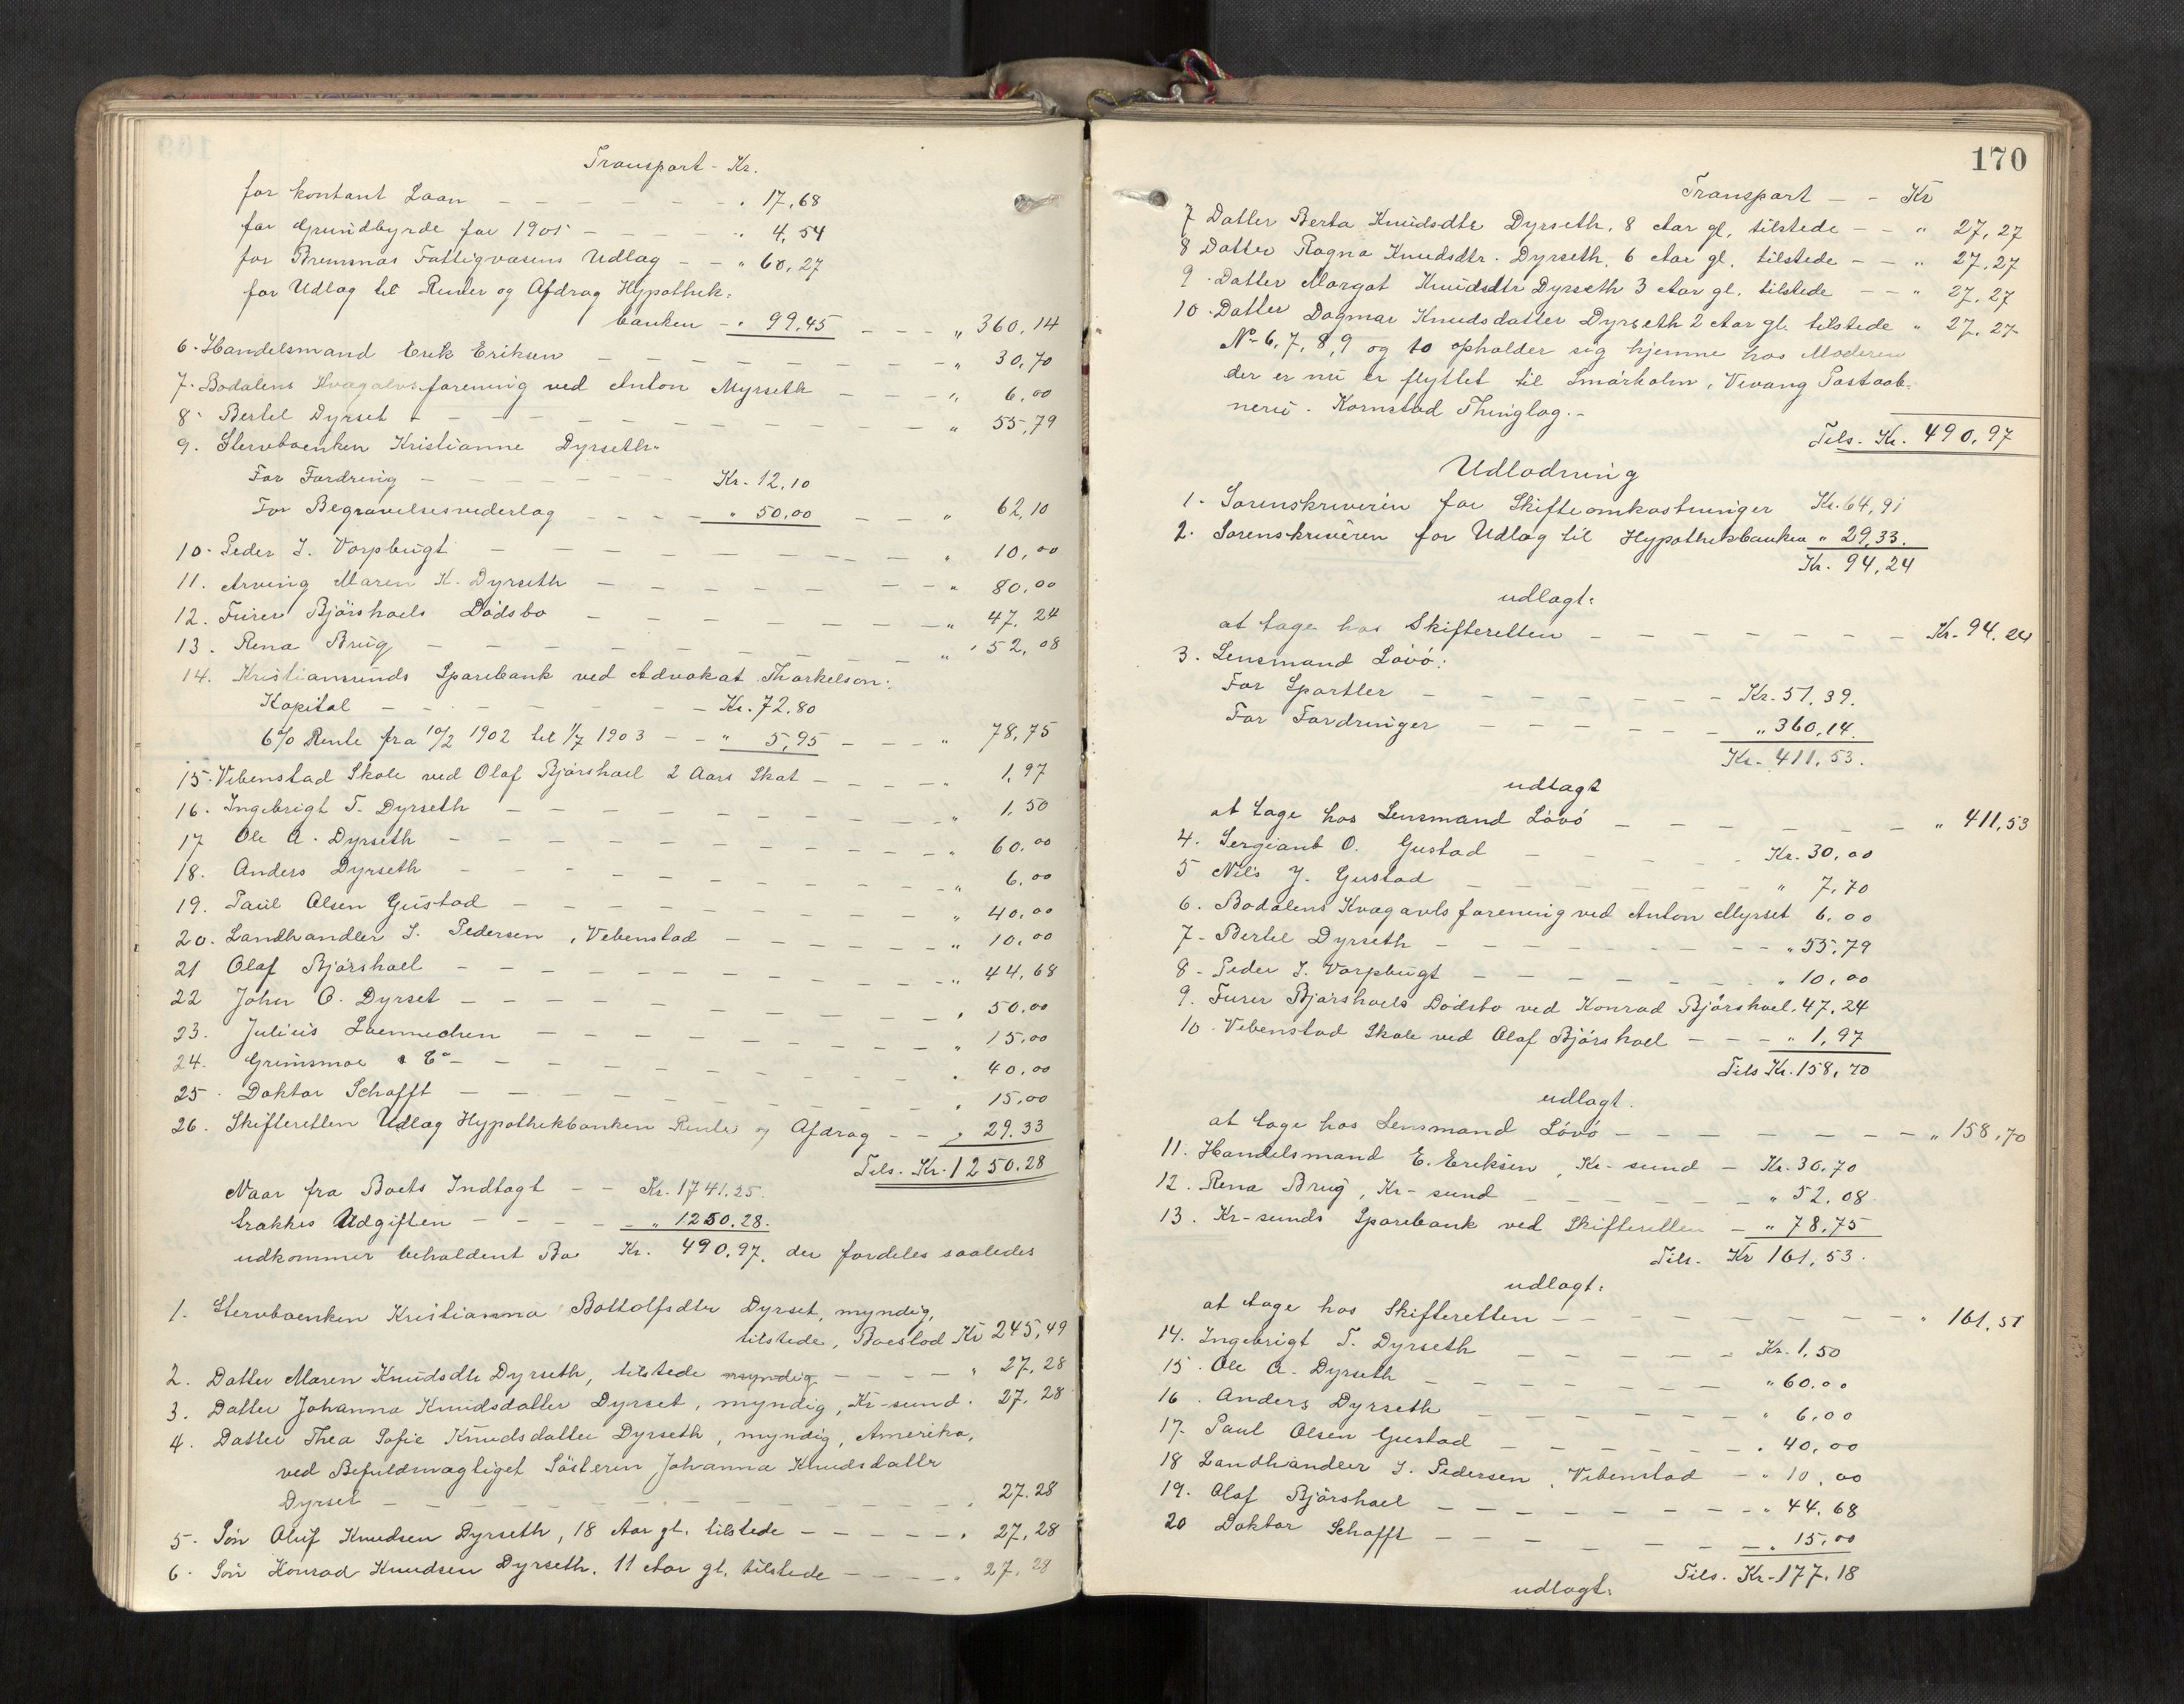 Transport - Kr.
for kontant Laan - - - - - - - " 17,68
for Grundbyrde for 1901 - - - - " 4,54
for Bremsnæs Fattigvæsens Udlæg - - " 60,27
for Udlæg til Renter og Afdrag Hypothek=
banken - " 99,45 - - - " 360,14
6. Handelsmand Erik Eriksen - - - - - - - " 30,70
7. Bodalens Kvægavlsforening ved Anton Myrseth - - - " 6,00
8. Bertel Dyrset - - - - - - - - - " 55,79
9. Stervboenken Kristianne Dyrseth:
For Fordring - - - - - - - Kr. 12,10
For Begravelsesvederlag - - - - " 50,00 - - " 62,10
10. Peder I. Vorpbugt - - - - - - - - - " 10,00
11. Arving Maren K. Dyrseth - - - - - - " 80,00
12. Furer Bjørshaels Dødsbo - - - - - - - " 47,24
13. Rena Brug - - - - - - - - - " 52,08
14. Kristiansunds Sparebank ved Advokat Thorkelson:
Kapital - - - - - - - - Kr. 72,80
6% Rente fra 10/2 1902 til 1/7 1903 - - " 5,95 - - - " 78,75
15. Vebenstad Skole ved Olaf Bjørshael 2 Aars Skat - - - - 1,97
16. Ingebrigt T. Dyrseth - - - - - - - - " 1,50
17 Ole A. Dyrseth - - - - - - - - - - " 60,00
18. Anders Dyrseth - - - - - - - - - " 6,00
19. Paul Olsen Gustad - - - - - - - - " 40,00
20. Landhandler I. Pedersen, Vebenstad - - - - - - " 10,00
21 Olaf Bjørshael - - - - - - - - - - " 44,68
22 John O. Dyrset - - - - - - - - - " 50,00
23. Julius Loennechen - - - - - - - - " 15,00
24. Grimsmoe & Co - - - - - - - - - " 40,00
25. Doktor Schafft - - - - - - - - - " 15,00
26. Skifteretten Udlæg Hypothekbanken Renter og Afdrag - - " 29.33
Tils. Kr. 1250.28
Naar fra Boets Indtægt - - Kr. 1741.25.
trækkes Udgiften - - - - - " 1250.28.
udkommer beholdent Bo Kr. 490,97. der fordeles saaledes
1. Stervboenken Kristianna Bottolfsdtr Dyrset, myndig,
tilstede, Boeslod Kr 245,49
2. Datter Maren Knudsdtr Dyrseth, tilstede myndig - - - - " 27,28
3. Datter Johanna Knudsdatter Dyrset, myndig, Kr-sund. 27,28
4. Datter Thea Sofie Knudsdatter Dyrseth, myndig, Amerika,
ved Befuldmægtiget Søsteren Johanna Knudsdattr
Dyrset - - - - - - - - - - - 27.28
5. Søn Oluf Knudsen Dyrseth, 18 Aar gl. tilstede - - - - - " 27,28
6. Søn Konrad Knudsen Dyrseth. 11 Aar gl. tilstede - - - - " 27,28
170
Transport - - Kr
7 Datter Berta Knudsdtr Dyrseth, 8 Aar gl, tilstede - - " 27,27
8 Datter Ragna Knudsdtr. Dyrseth, 6 Aar gl. tilstede - - " 27,27
9. Datter Margot Knudsdtr Dyrseth 3 Aar gl. tilstede - - " 27,27
10. Datter Dagmar Knudsdatter Dyrseth 2 Aar gl. tilstede " 27,27
No 6, 7, 8, 9 og 10 opholder sig hjemme hos Moderen
der er nu er flyttet til Smørholm, Vevang Postaab=
neri. Kornstad Thinglag.-
Tils. Kr. 490,97
Udlodning
1. Sorenskriveren for Skifteomkostninger Kr. 64,91
2. Sorenskriveren for Udlæg til Hypothekbanken " 29,33.
Kr. 94,24
udlagt:
at tage hos Skifteretten - - - - - - - Kr. 94.24
3. Lensmand Løvø:
For Sportler - - - - - - - Kr. 51,39.
For Fordringer - - - - - - " 360,14.
Kr. 411,53.
udlagt
at tage hos Lensmand Løvø - - - - - - - " 411,53
4. Sergiant O. Gustad - - - - Kr. 30,00
5 Nils J. Gustad - - - - - - - " 7,70
6. Bodalens Kvægavlsforening ved Anton Myrset 6,00
7. Bertel Dyrseth - - - - - - - - - " 55,79
8. Peder I. Vorpbugt - - - - - - - " 10,00
9. Furer Bjørshaels Dødsbo ved Konrad Bjørshael. 47,24
10. Vebenstad Skole ved Olaf Bjørshael - - - " 1,97
Tils Kr. 158,70
udlagt.
at tage hos Lensmand Løvø - - - - - - - - " 158,70
11. Handelsmand E. Eriksen, Kr-sund - Kr. 30,70
12. Rena Brug, Kr-sund - - - - - - " 52,08.
13. Kr-sunds Sparebank ved Skifteretten - " 78,75
Tils. Kr 161,53.
udlagt:
at tage hos Skifteretten - - - - - - - - - " 161,51
14. Ingebrigt T. Dyrseth - - - - - Kr. 1,50
15. Ole A. Dyrseth - - - - - - - - " 60.00
16. Anders Dyrseth - - - - - - - " 6,00
17. Paul Olsen Gustad - - - - - - " 40,00
18 Landhandler I. Pedersen, Vebenstad - " 10,00
19. Olaf Bjørshael - - - - - - - - " 44,68
20 Doktor Schafft - - - - - - - " 15,00
Tils. Kr. 177,18
udlagt: